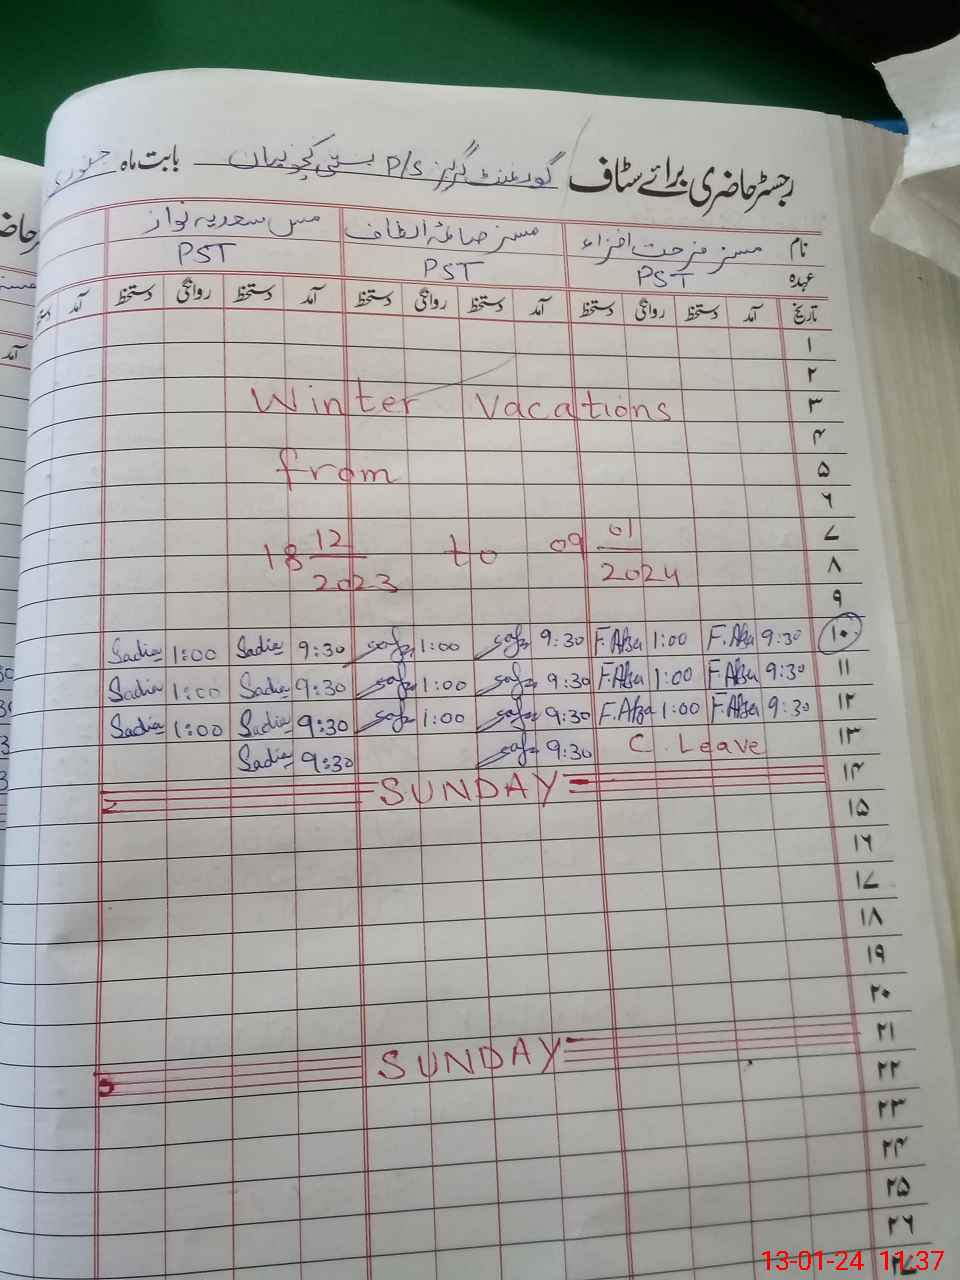 رجسٹر حاضری برائے سٹاف گورنمنٹ گرلز P/S بستی بابت ماہ جنوری
نام مسز فرحت افزاء مسز صائمہ الطاف مس سعدیہ نواز
عہدہ PST PST PST
تاریخ آمد دستخط روانگی دستخط آمد دستخط روانگی دستخط آمد دستخط روانگی دستخط آمد
۱
۲
۳ Winter Vacations
۴
۵ from
۶
۷
18 12/2023 to 09 01/2024
۸
۹
۱۰ 9:30 F.Afza 1:00 F.Afza 9:30 1:00 9:30 Sadia 1:00 Sadia
۱۱ 9:30 F.Afza 1:00 F.Afza 9:30 1:00 9:30 Sadia 1:00 Sadia
۱۲ 9:30 F.Afza 1:00 F.Afza 9:30 1:00 9:30 Sadia 1:00 Sadia
۱۳ C. Leave 9:30 9:30 Sadia
۱۴ SUNDAY
۱۵
۱۶
۱۷
۱۸
۱۹
۲۰
۲۱ SUNDAY
۲۲
۲۳
۲۴
۲۵
۲۶
۲۷
13-01-24 11:37